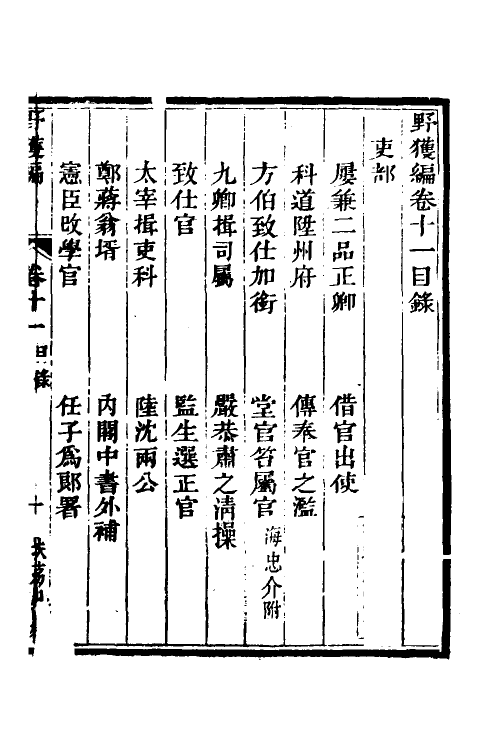 野獲編卷十一目錄
吏部
屢兼二品正卿　借官出使
科道陞州府　傳奉官之濫
方伯致仕加銜　堂官笞屬官海忠介附
九卿揖司屬　嚴恭肅之清操
致仕官　監生選正官
太宰揖吏科　陸沈兩公
鄭蔣翁壻　內閣中書外補
憲臣改學官　任子爲郎署
野獲編　卷十一目錄　十　扶荔